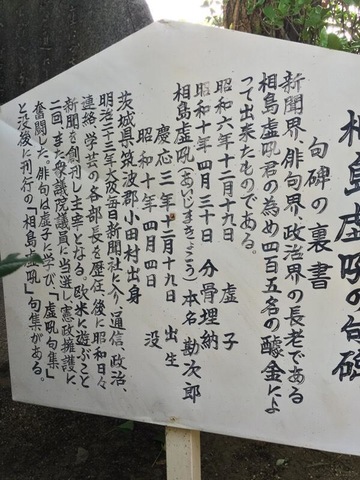 相島虚吼の句碑
句碑の裏書
新聞界、俳句界、政治界の長老である
相島虚吼君の為め四百五名の醵金によ
って出来たものである。
昭和六年十二月十九日 虚子
昭和十年四月三十日 分骨埋納
相島虚吼(あいじまきょこう)本名 勘次郎
慶応三年十二月十九日 出生
昭和十年四月四日 没
茨城県筑波郡小田村出身
明治二十三年大阪毎日新聞社に入り、通信、政治、
連絡、学芸の各部長を歴任、後に昭和日々
新聞を創刊し主宰となる。欧米に遊ぶこと
二回、また衆議院議員に当選し憲政擁護に
奮闘した。俳句は虚子に学び、「虚吼句集」
と没後に刊行の「相島虚吼」句集がある。